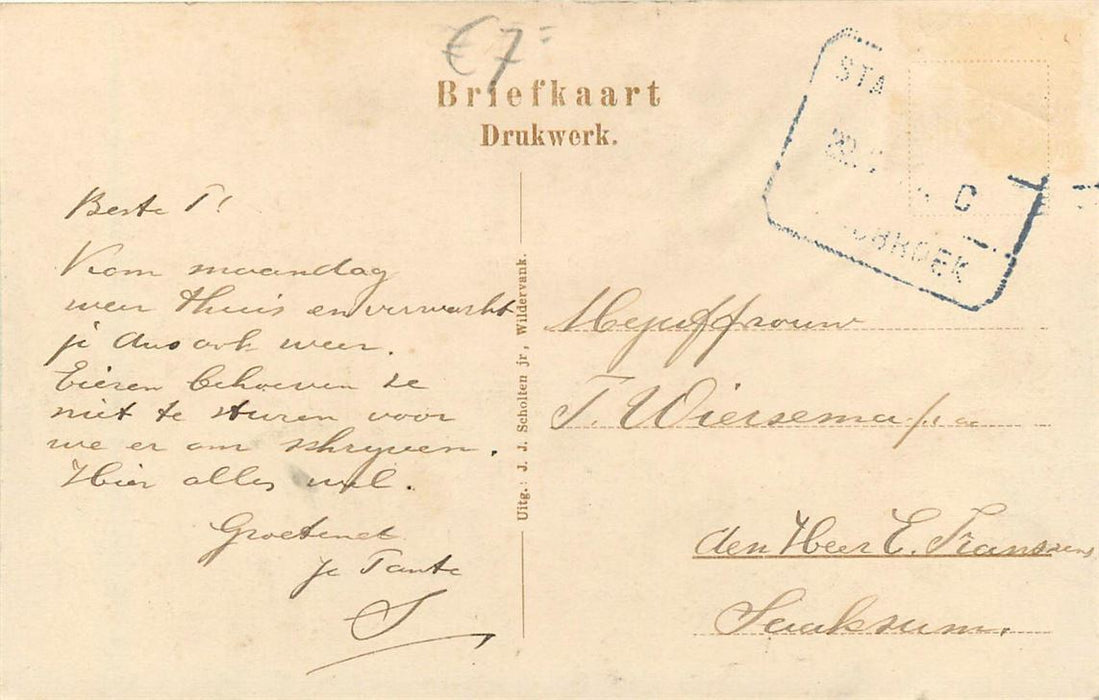 € 7=
Briefkaart
Drukwerk.
STA
C
BROEK
Beste T!
Kom maandag
weer thuis en verwacht
je dus ook weer.
Eieren behoeven ze
niet te sturen voor
we er om schryven.
Hier alles wel.
Groetend
je Tante
S
Uitg.: J. J. Scholten jr, Wildervank.
Mejuffrouw
T. Wiersema p/a
den Heer E. Franssens
Saaksum.